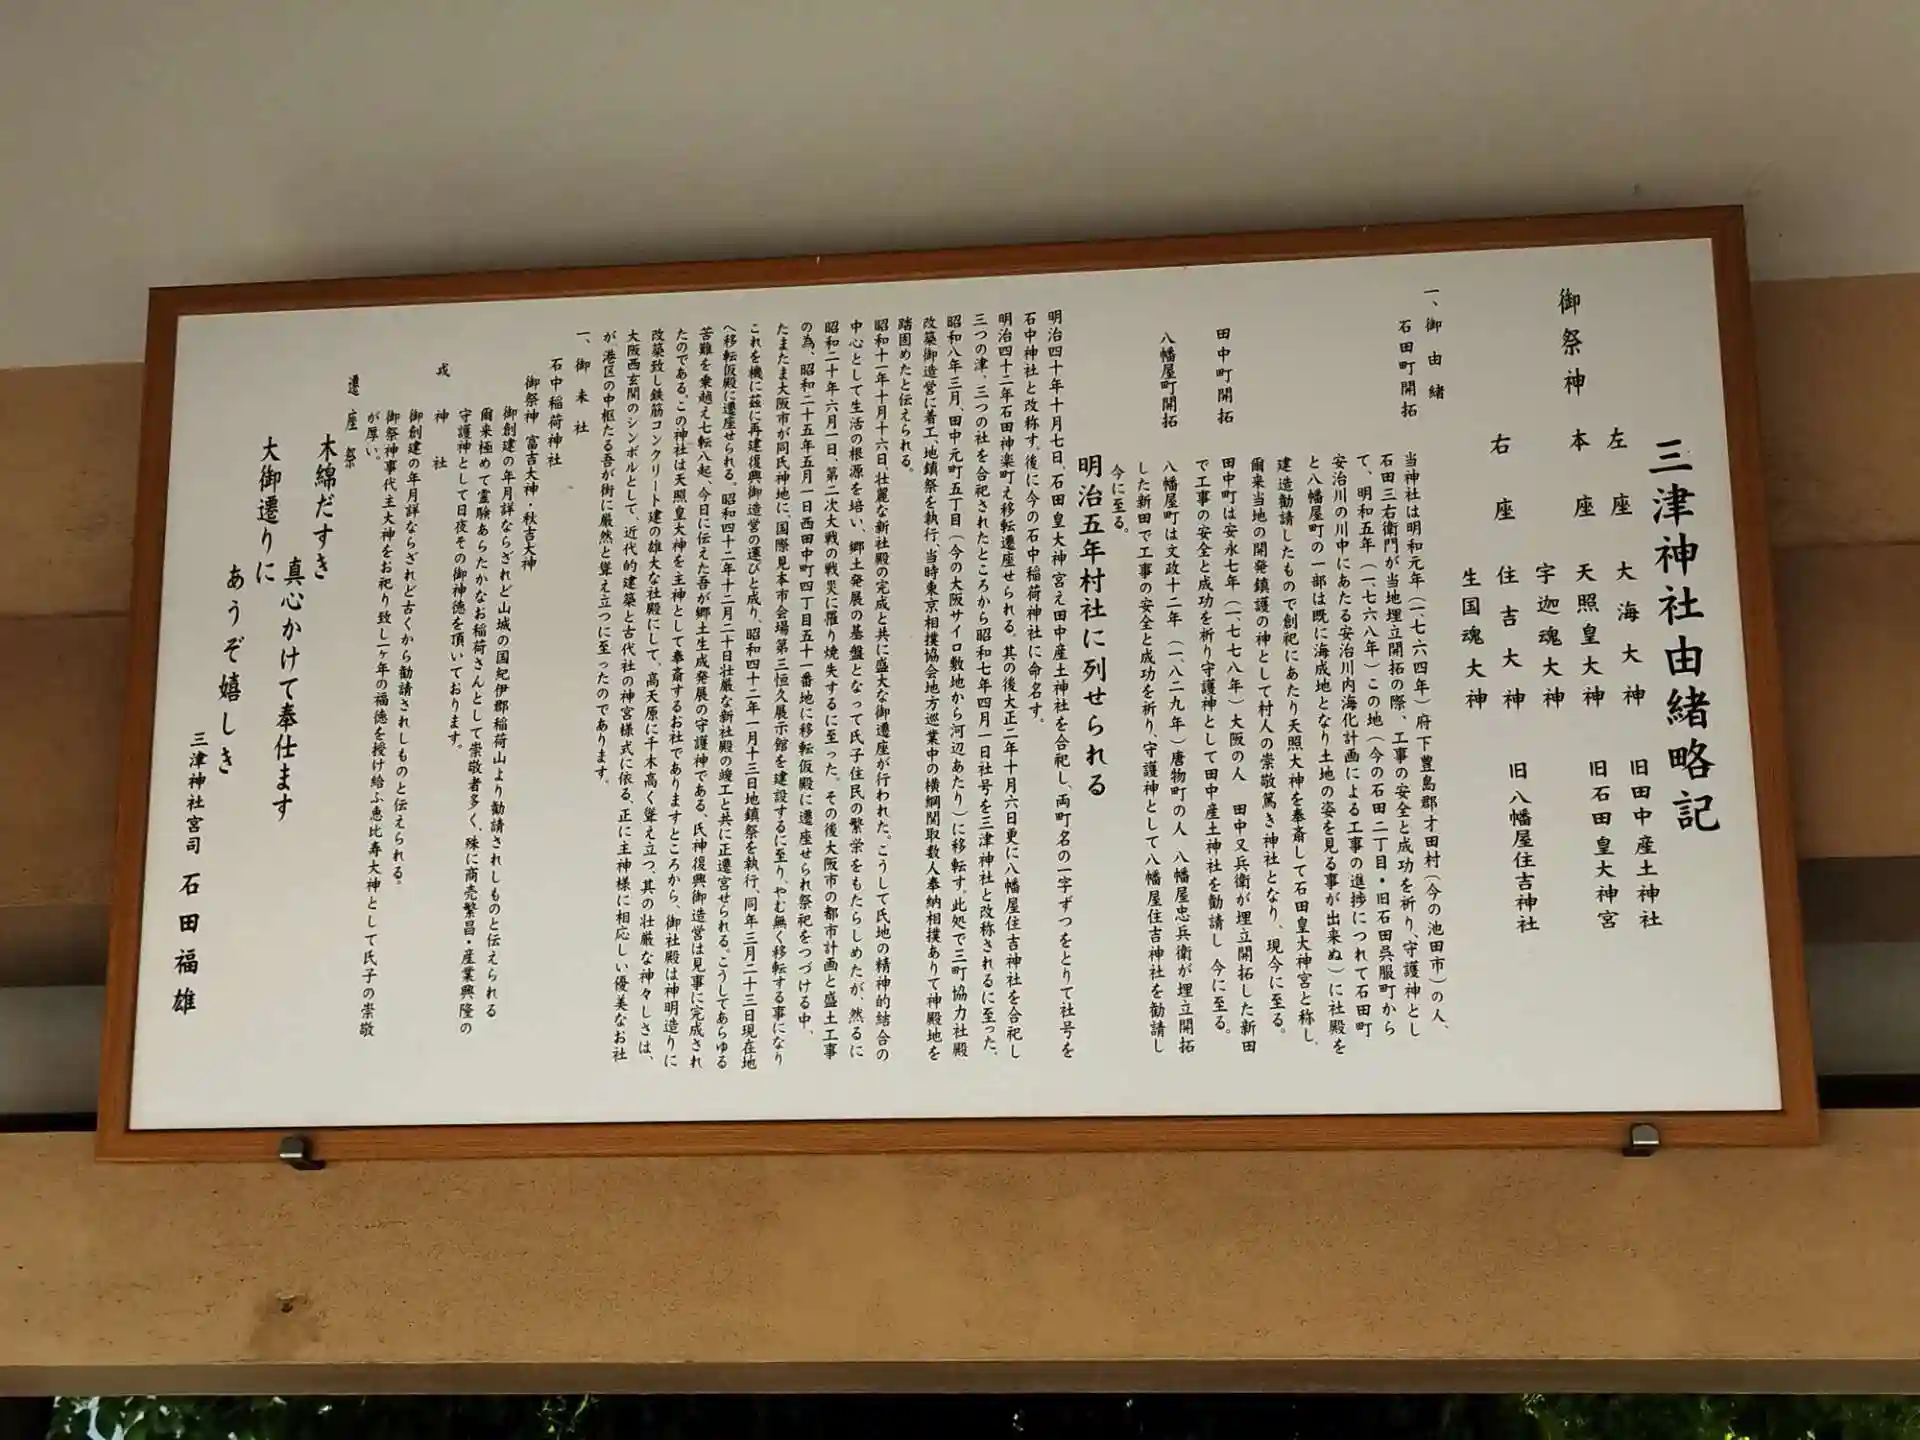 三津神社由緒略記
御祭神
左座 大海大神 旧田中産土神社
本座 天照皇大神 旧石田皇大神宮
宇迦魂大神
右座 住吉大神 旧八幡屋住吉神社
生国魂大神
一、御由緒
石田町開拓
当神社は明和元年(一、七六四年)府下豊島郡才田村(今の池田市)の人、
石田三右衛門が当地埋立開拓の際、工事の安全と成功を祈り、守護神とし
て、明和五年(一、七六八年)この地(今の石田二丁目・旧石田呉服町から
安治川の川中にあたる安治川内海化計画による工事の進捗につれて石田町
と八幡屋町の一部は既に海成地となり土地の姿を見る事が出来ぬ)に社殿を
建造勧請したもので創祀にあたり天照大神を奉斎して石田皇大神宮と称し、
爾来当地の開発鎮護の神として村人の崇敬篤き神社となり、現今に至る。
田中町開拓
田中町は安永七年(一、七七八年)大阪の人 田中又兵衛が埋立開拓した新田
で工事の安全と成功を祈り守護神として田中産土神社を勧請し 今に至る。
八幡屋町開拓
八幡屋町は文政十二年(一、八二九年)唐物町の人 八幡屋忠兵衛が埋立開拓
した新田で工事の安全と成功を祈り、守護神として八幡屋住吉神社を勧請し
今に至る。
明治五年村社に列せられる
明治四十年十月七日、石田皇大神宮え田中産土神社を合祀し、両町名の一字ずつをとりて社号を
石中神社と改称す。後に今の石中稲荷神社に命名す。
明治四十二年石田神楽町え移転遷座せられる。其の後大正二年十月六日更に八幡屋住吉神社を合祀し
三つの津、三つの社を合祀されたところから昭和七年四月一日社号を三津神社と改称されるに至った。
昭和八年三月、田中元町五丁目(今の大阪サイロ敷地から河辺あたり)に移転す。此処で三町協力社殿
改築御造営に着工、地鎮祭を執行、当時東京相撲協会地方巡業中の横綱関取数人奉納相撲ありて神殿地を
踏固めたと伝えられる。
昭和十一年十月十六日、壮麗な新社殿の完成と共に盛大な御遷座が行われた。こうして氏地の精神的結合の
中心として生活の根源を培い、郷土発展の基盤となって氏子住民の繁栄をもたらしめたが、然るに
昭和二十年六月一日、第二次大戦の戦災に罹り焼失するに至った。その後大阪市の都市計画と盛土工事
の為、昭和二十五年五月一日西田中町四丁目五十一番地に移転仮殿に遷座せられ祭祀をつづける中、
たまたま大阪市が同氏神地に、国際見本市会場第三恒久展示館を建設するに至り、やむ無く移転する事になり
これを機に茲に再建復興御造営の運びと成り、昭和四十二年一月十三日地鎮祭を執行、同年三月二十三日現在地
へ移転仮殿に遷座せられる。昭和四十二年十二月二十日壮厳な新社殿の竣工と共に正遷宮せられる。こうしてあらゆる
苦難を乗越え七転八起、今日に伝えた吾が郷土生成発展の守護神である、氏神復興御造営は見事に完成され
たのである。この神社は天照皇大神を主神として奉斎するお社でありますところから、御社殿は神明造りに
改築致し鉄筋コンクリート建の雄大な社殿にして、高天原に千木高く聳え立つ、其の壮厳な神々しさは、
大阪西玄関のシンボルとして、近代的建築と古代社の神宮様式に依る、正に主神様に相応しい優美なお社
が、港区の中枢たる吾が街に厳然と聳え立つに至ったのであります。
一、御末社
石中稲荷神社
御祭神 富吉大神・秋吉大神
御創建の年月詳ならざれど山城の国紀伊郡稲荷山より勧請されしものと伝えられる
爾来極めて霊験あらたかなお稲荷さんとして崇敬者多く、殊に商売繁昌・産業興隆の
守護神として日夜その御神徳を頂いております。
戎神社
御創建の年月詳ならざれど古くから勧請されしものと伝えられる。
御祭神事代主大神をお祀り致し一ヶ年の福徳を授け給ふ恵比寿大神として氏子の崇敬
が厚い。
遷座祭
木綿だすき
真心かけて奉仕ます
大御遷りに
あうぞ嬉しき
三津神社宮司 石田福雄